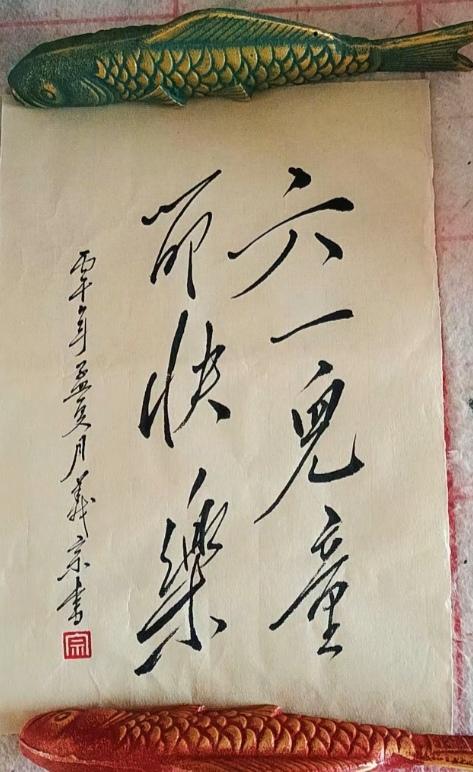 六一兒童
節快樂
丙午年孟夏月義宗書
宗